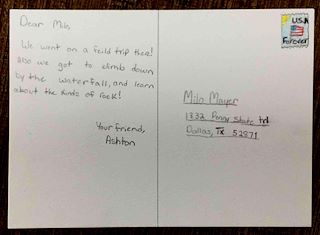 Dear Milo,
We went on a feild trip ther!
Also we got to climb down
by the waterfall, and learn
about the kinds of rock!
Your friend,
Ashton
U.S.A
Forever
Milo Mayer
1332 Penny State
Dallas, TX 52871